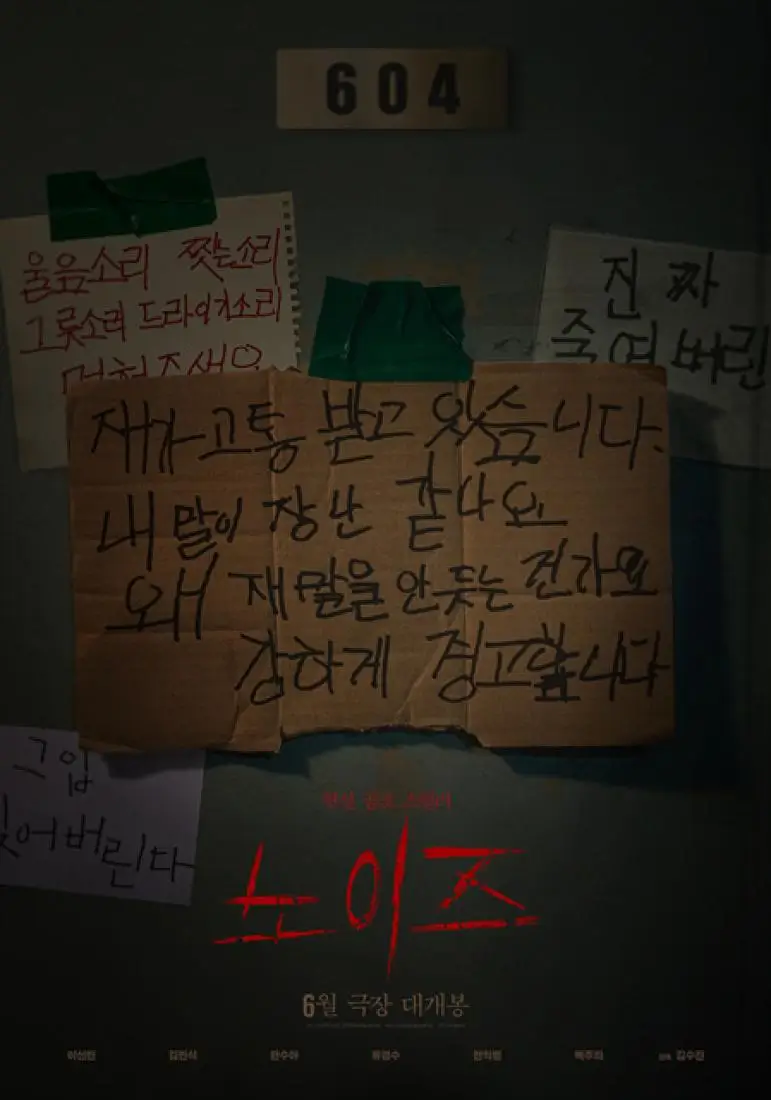 604
울음소리 짖는소리
그릇소리 드라이기소리
멈춰주세요
진짜
죽여버린
재가 고통 받고 있습니다.
내 말이 장난 같나요
왜 재 말을 안 듯는 건가요
강하게 경고합니다
그 입
찢어버린다
현실 공포 스릴러
노이즈
6월 극장 대개봉
이선빈 김민석 한수아 류경수 전익령 백주희 감독 김수진